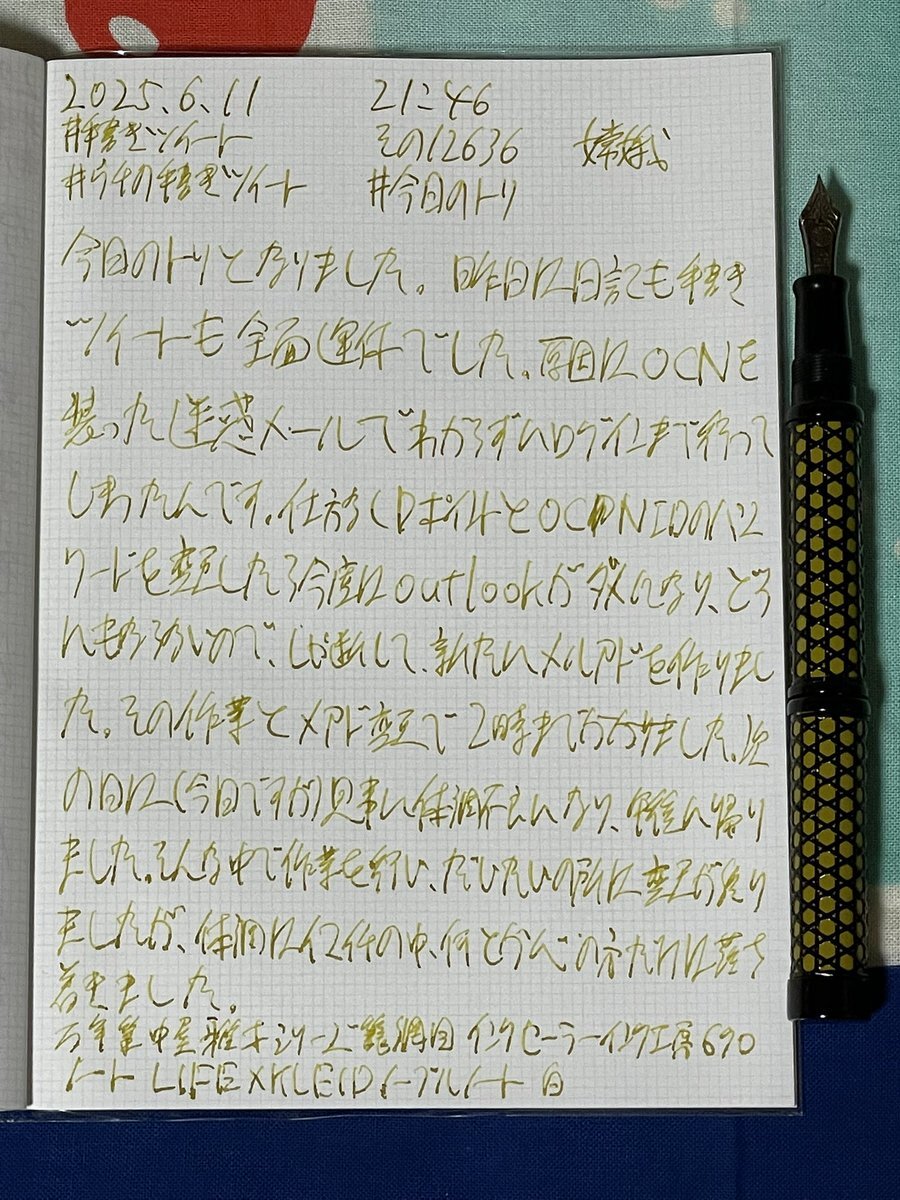 2025.6.11 21:46
#手書きツイート その12636 嫦娥
#うちの手書きツイート #今日のトリ
今日のトリとなりました。昨日は日記も手書き
ツイートも全面運休でした。原因はOCNを
装った迷惑メールでわからずにログインまで行って
しまったんです。仕方なくdポイントとOCNIDのパス
ワードを変更したら今度はoutlookがダメになり、どう
にもならないので、し 断して、新たにメルアドを作りまし
た。その作業とメアド変更で2時までかかりました。次
の日は(今日ですが)見事に体調不良になり、早々に帰り
ました。そんな中で作業を行い、だいたいの所は変更が終り
ましたが、体調はイマイチの中、何とか の方だけは落ち
着きました。
万年筆 中屋 シリーズ 籠網目 インク セーラーインク工房690
ノート LIFE×KLEIDノーブルノート 白